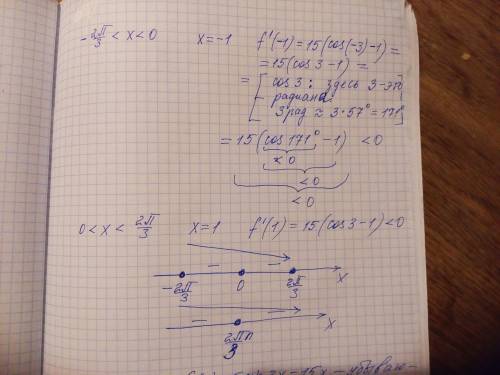 -2π/3 < x < 0   x = -1   f'(-1) = 15(cos(-3) - 1) =
= 15(cos 3 - 1) =
= [cos 3 : здесь 3 - это
радиана.
3 рад ≈ 3·57° = 171°]
= 15(cos 171° - 1) < 0
< 0
< 0
< 0
0 < x < 2π/3   x = 1   f'(1) = 15(cos 3 - 1) < 0
- -
-2π/3   0   2π/3   x
- -
2πn/3   x
- 15x - убываю-